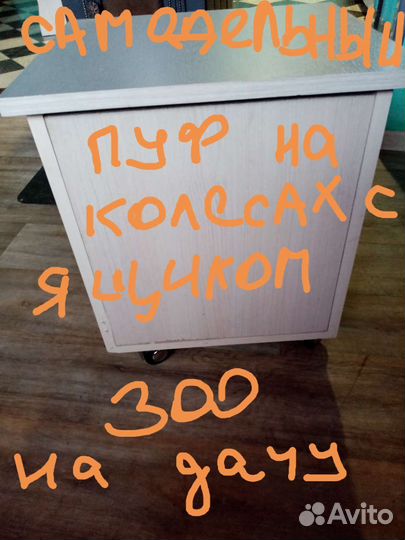 САМОДЕЛЬНЫЙ
ПУФ НА
КОЛЕСАХ С
ЯЩИЧКОМ
300
на дачу
Avito